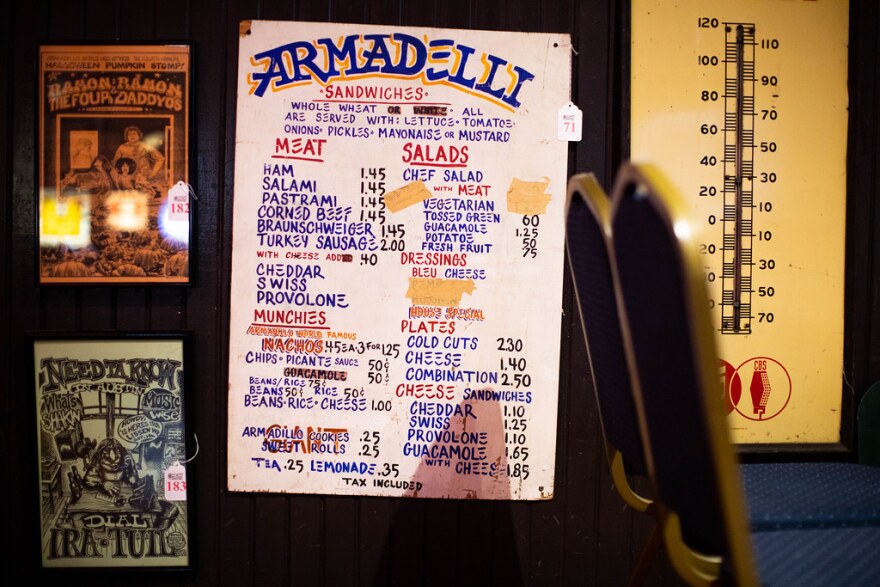 HALLOWEEN PUMPKIN STOMP!
RAMON, RAMON
THE FOUR DADDYOS
182
NEEDTA KNOW
WHAT'S
MUSIC
WISE
DIAL
IRA-TUIL
183
ARMADELLI
SANDWICHES
WHOLE WHEAT OR WHITE · ALL
ARE SERVED WITH: LETTUCE · TOMATOE ·
ONIONS · PICKLES · MAYONAISE OR MUSTARD
MEAT
HAM 1.45
SALAMI 1.45
PASTRAMI 1.45
CORNED BEEF 1.45
BRAUNSCHWEIGER 1.45
TURKEY SAUSAGE 2.00
WITH CHEESE ADD .40
CHEDDAR
SWISS
PROVOLONE
MUNCHIES
ARMADILLO WORLD FAMOUS
NACHOS .45 EA · 3 FOR 1.25
CHIPS · PICANTE SAUCE 50¢
GUACAMOLE 50¢
BEANS/RICE 75¢
BEANS 50¢ RICE 50¢
BEANS · RICE · CHEESE 1.00
GIANT
ARMADILLO COOKIES .25
SWEET ROLLS .25
TEA .25 LEMONADE .35
TAX INCLUDED
SALADS
CHEF SALAD
WITH MEAT
VEGETARIAN
TOSSED GREEN 60
GUACAMOLE 1.25
POTATOE 50
FRESH FRUIT 75
DRESSINGS
BLEU CHEESE
HOUSE SPECIAL
PLATES
COLD CUTS 2.30
CHEESE 1.40
COMBINATION 2.50
CHEESE SANDWICHES
CHEDDAR 1.10
SWISS 1.25
PROVOLONE 1.10
GUACAMOLE 1.65
WITH CHEESE 1.85
71
120
110
100
90
80
70
60
50
40
30
20
10
0
10
30
50
70
CBS